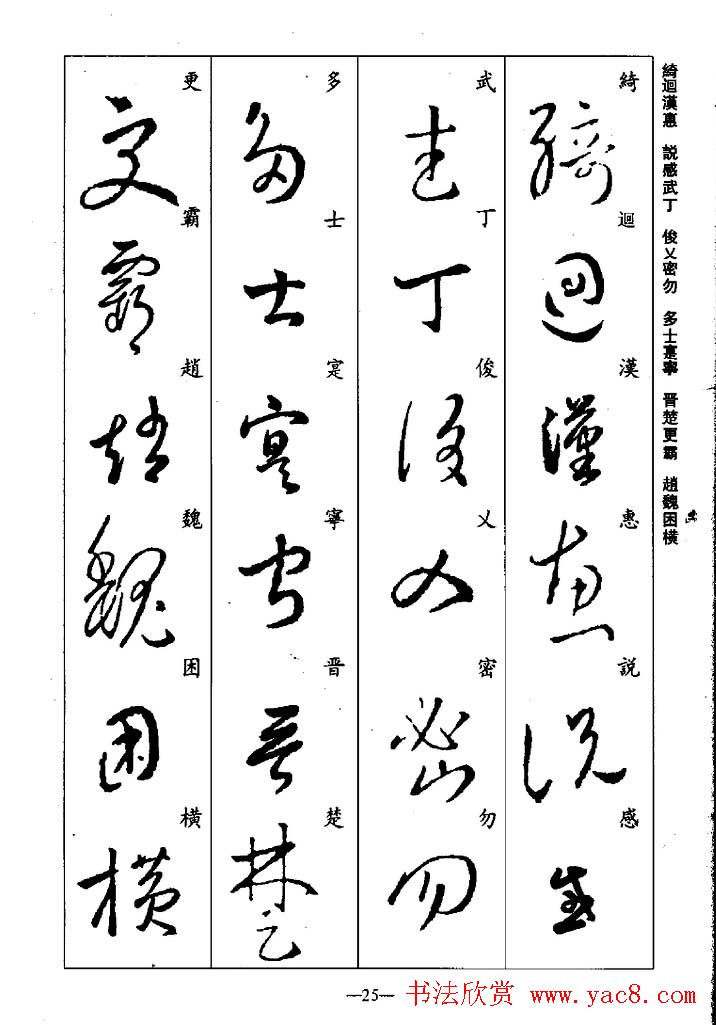 綺迴漢惠 説感武丁 俊乂密勿 多士寔寧 晉楚更霸 趙魏困橫
綺迴漢惠説感
武丁俊乂密勿
多士寔寧晉楚
更霸趙魏困橫
—25—
书法欣赏 www.yac8.com